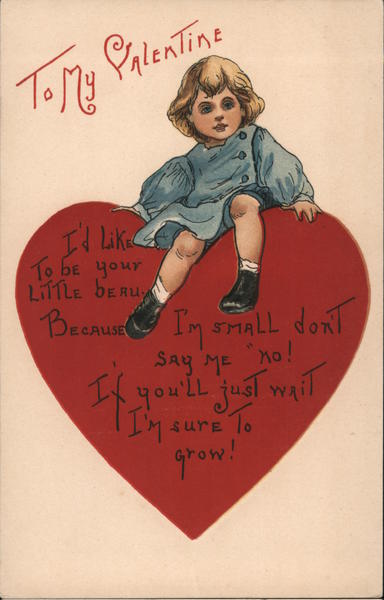 To My Valentine
I'd like
To be your
Little beau-
Because I'm small don't
say me "no!
If you'll just wait
I'm sure to
grow!